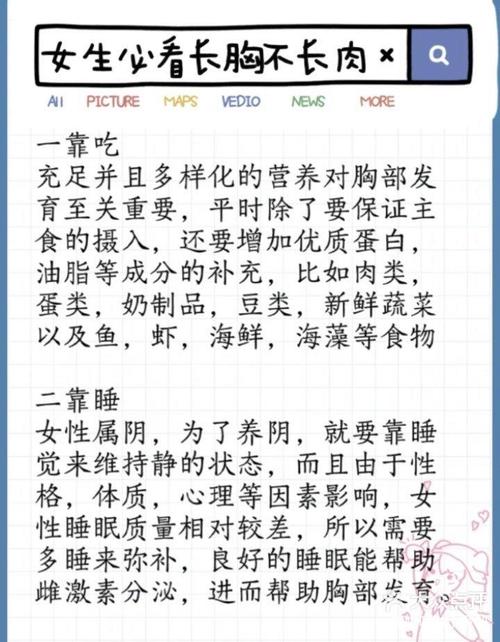 女生必看长胸不长肉 ×
All PICTURE MAPS VEDIO NEWS MORE
一靠吃
充足并且多样化的营养对胸部发
育至关重要，平时除了要保证主
食的摄入，还要增加优质蛋白，
油脂等成分的补充，比如肉类，
蛋类，奶制品，豆类，新鲜蔬菜
以及鱼，虾，海鲜，海藻等食物
二靠睡
女性属阴，为了养阴，就要靠睡
觉来维持静的状态，而且由于性
格，体质，心理等因素影响，女
性睡眠质量相对较差，所以需要
多睡来弥补，良好的睡眠能帮助
雌激素分泌，进而帮助胸部发育。